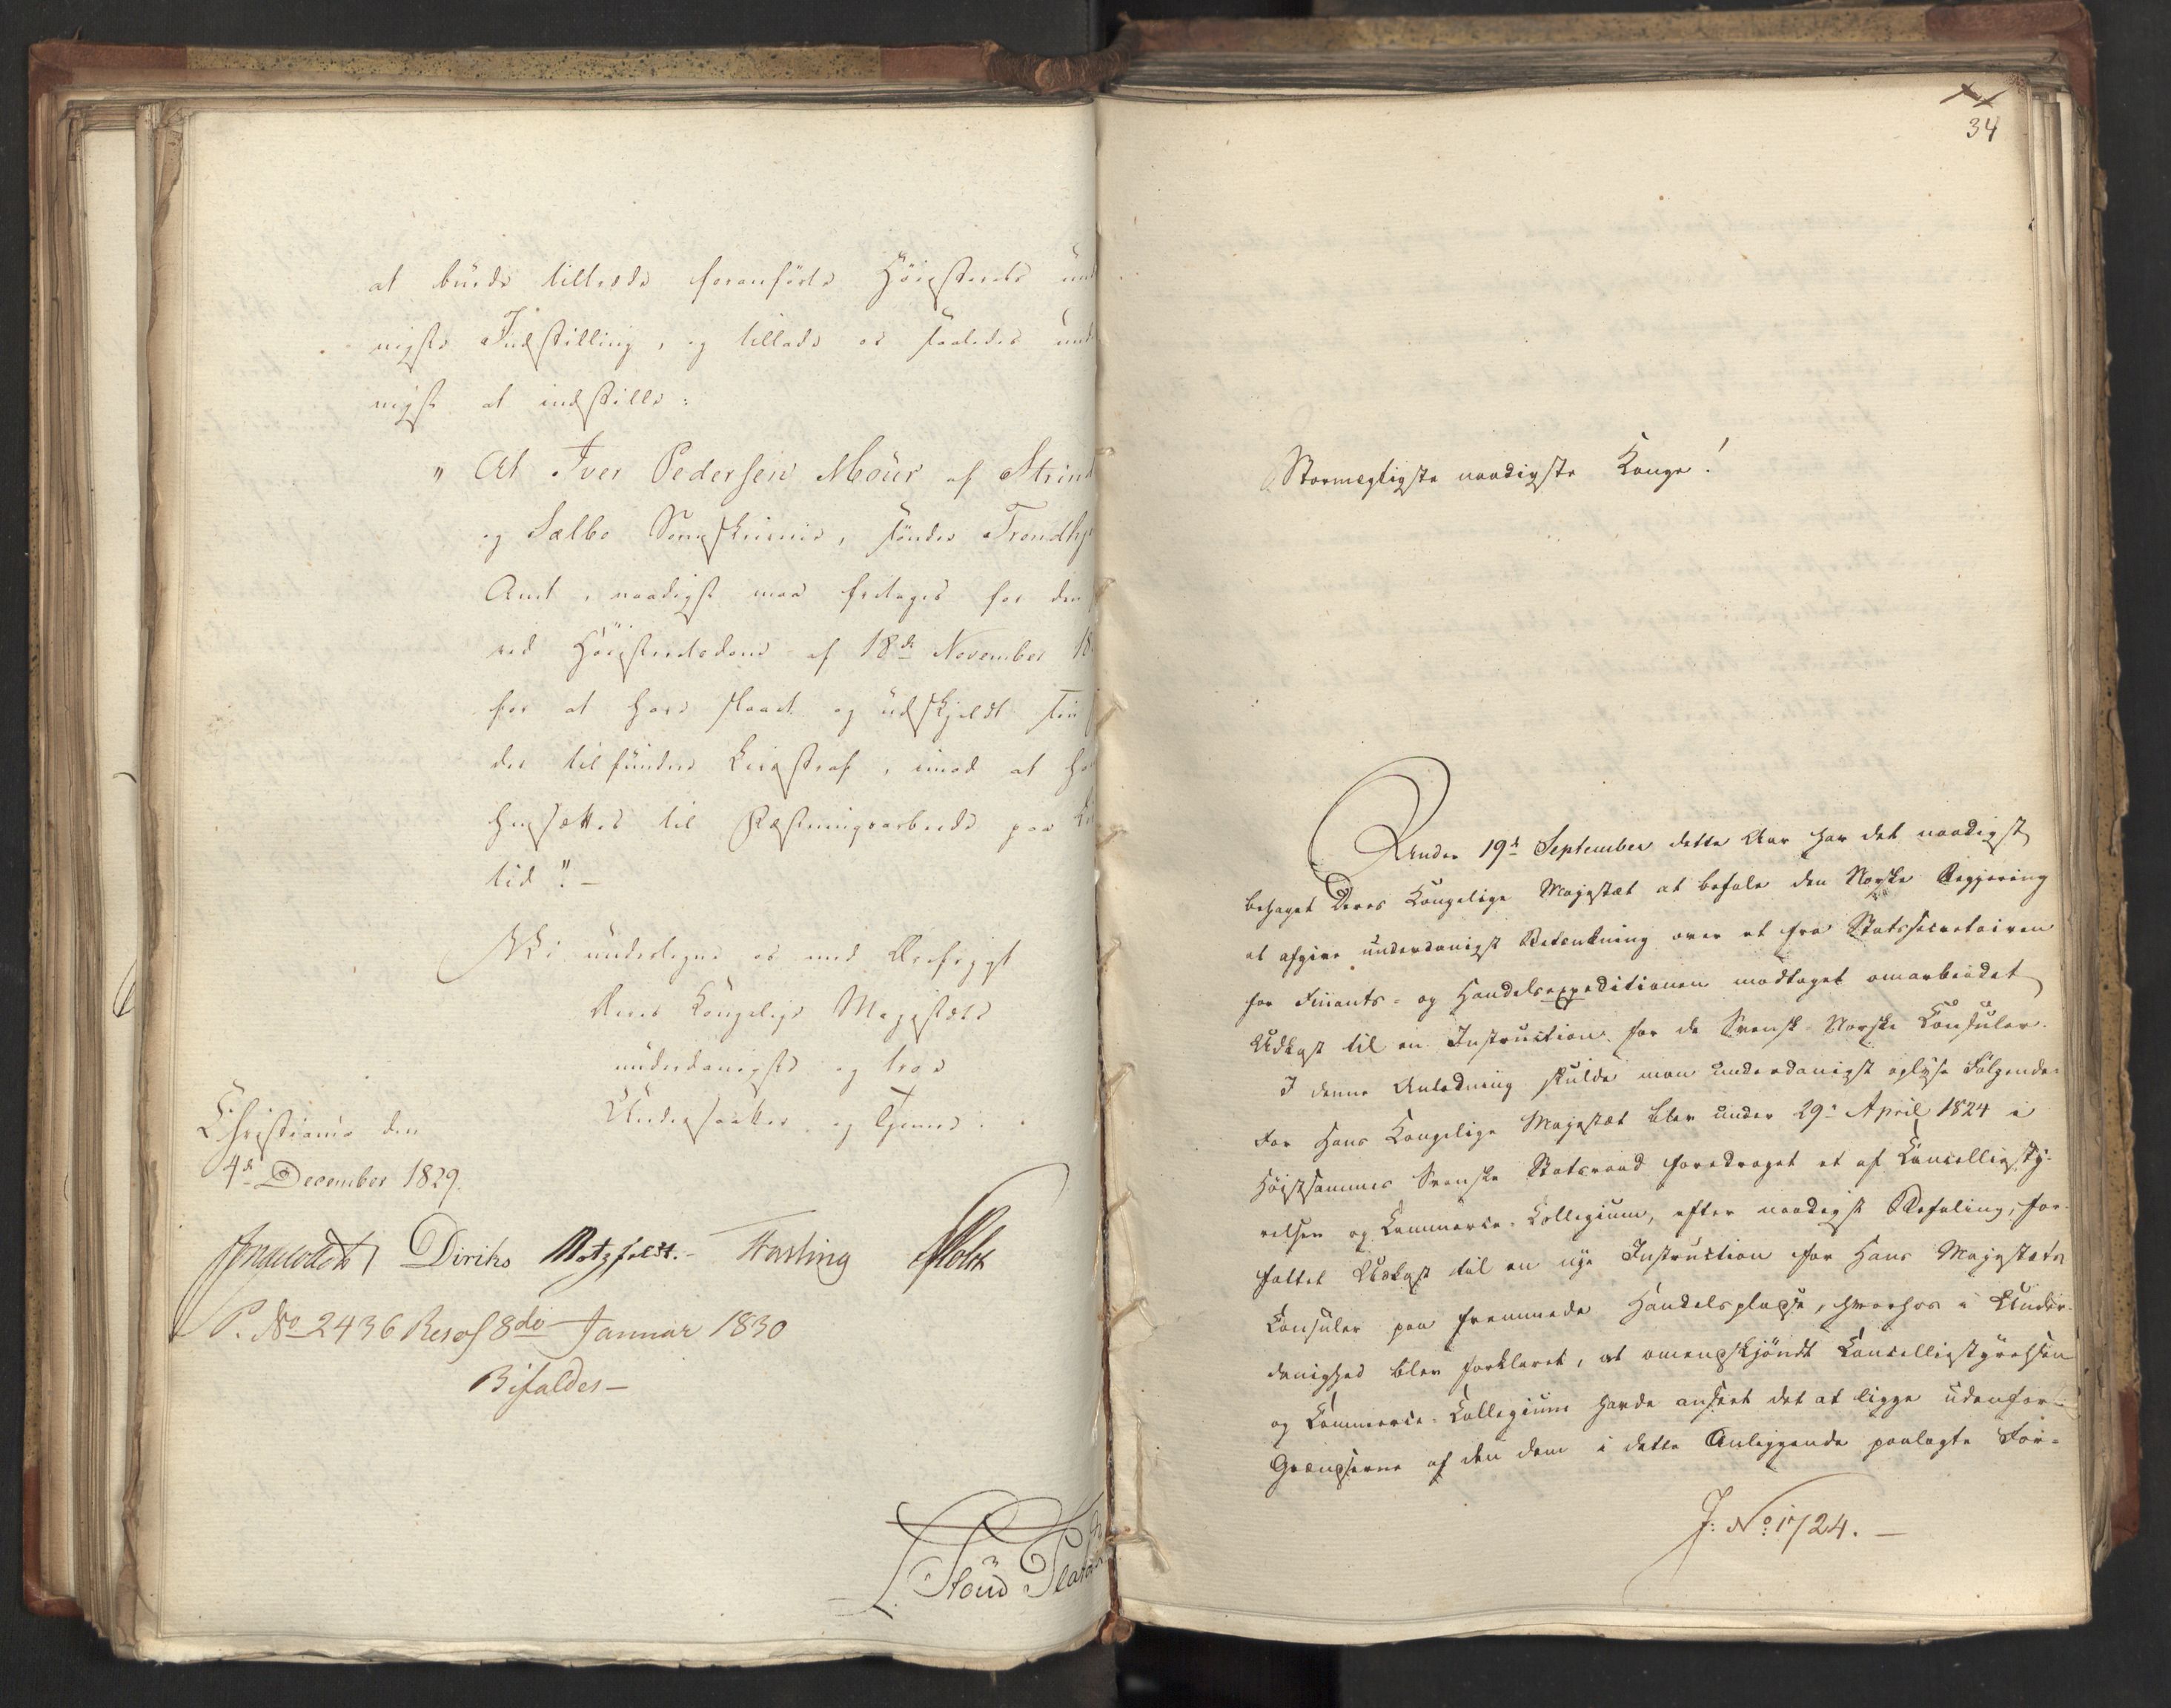 at burde tiltræde foranførte Høiesterets und
nigste Indstilling, og tillade os saaledes und
nigst at indstille:
" At Iver Pedersen Moûs af Strind
og Sælbo Sorenskriverie, søndre Trondhj
Amt, naadigst maa fritages for den
ved Høiesteretsdom af 18de November 18
for at have slaaet og udskjeldt sin
der tilfundne Livsstraf, imod at ha
hensættes til Fæstningsarbeide paa Liv
tid". –
Vi undertegne os med Ærefrygt
Deres Kongelige Majestæts
underdanigste og troe
Undersaatter og Tjenere.
Christiania den
4de December 1829.
Diriks Motzfeldt. – Fasting Holst
P. No 2436 Res. af 8de Januar 1830
Bifaldes –
L. Stoud Platou
34
Stormegtigste naadigste Konge!
Under 19de September dette Aar har det naadigst
behaget Deres Kongelige Majestæt at befale den Norske Regjering
at afgive underdanigst Betænkning over et fra Statssecretairen
for Finants- og Handelsexpeditionen modtaget omarbeidet
Udkast til en Instruction for de Svensk-Norske Consuler.
I denne Anledning skulde man underdanigst oplyse Følgende:
For Hans Kongelige Majestæt blev under 29. April 1824 i
Høistsammes Svenske Statsraad foredraget et af Cancelliesty-
relsen og Commerce-Collegium, efter naadigst Befaling, for-
fattet Udkast til en nye Instruction for Hans Majestæts
Consuler paa fremmede Handelspladse, hvorhos i Under-
danighed blev forklaret, at omendskjøndt Cancelliestyrelsen
og Commerce-Collegium havde anseet det at ligge udenfor
Grændserne af den dem i dette Anliggende paalagte For-
J: No 1724. –